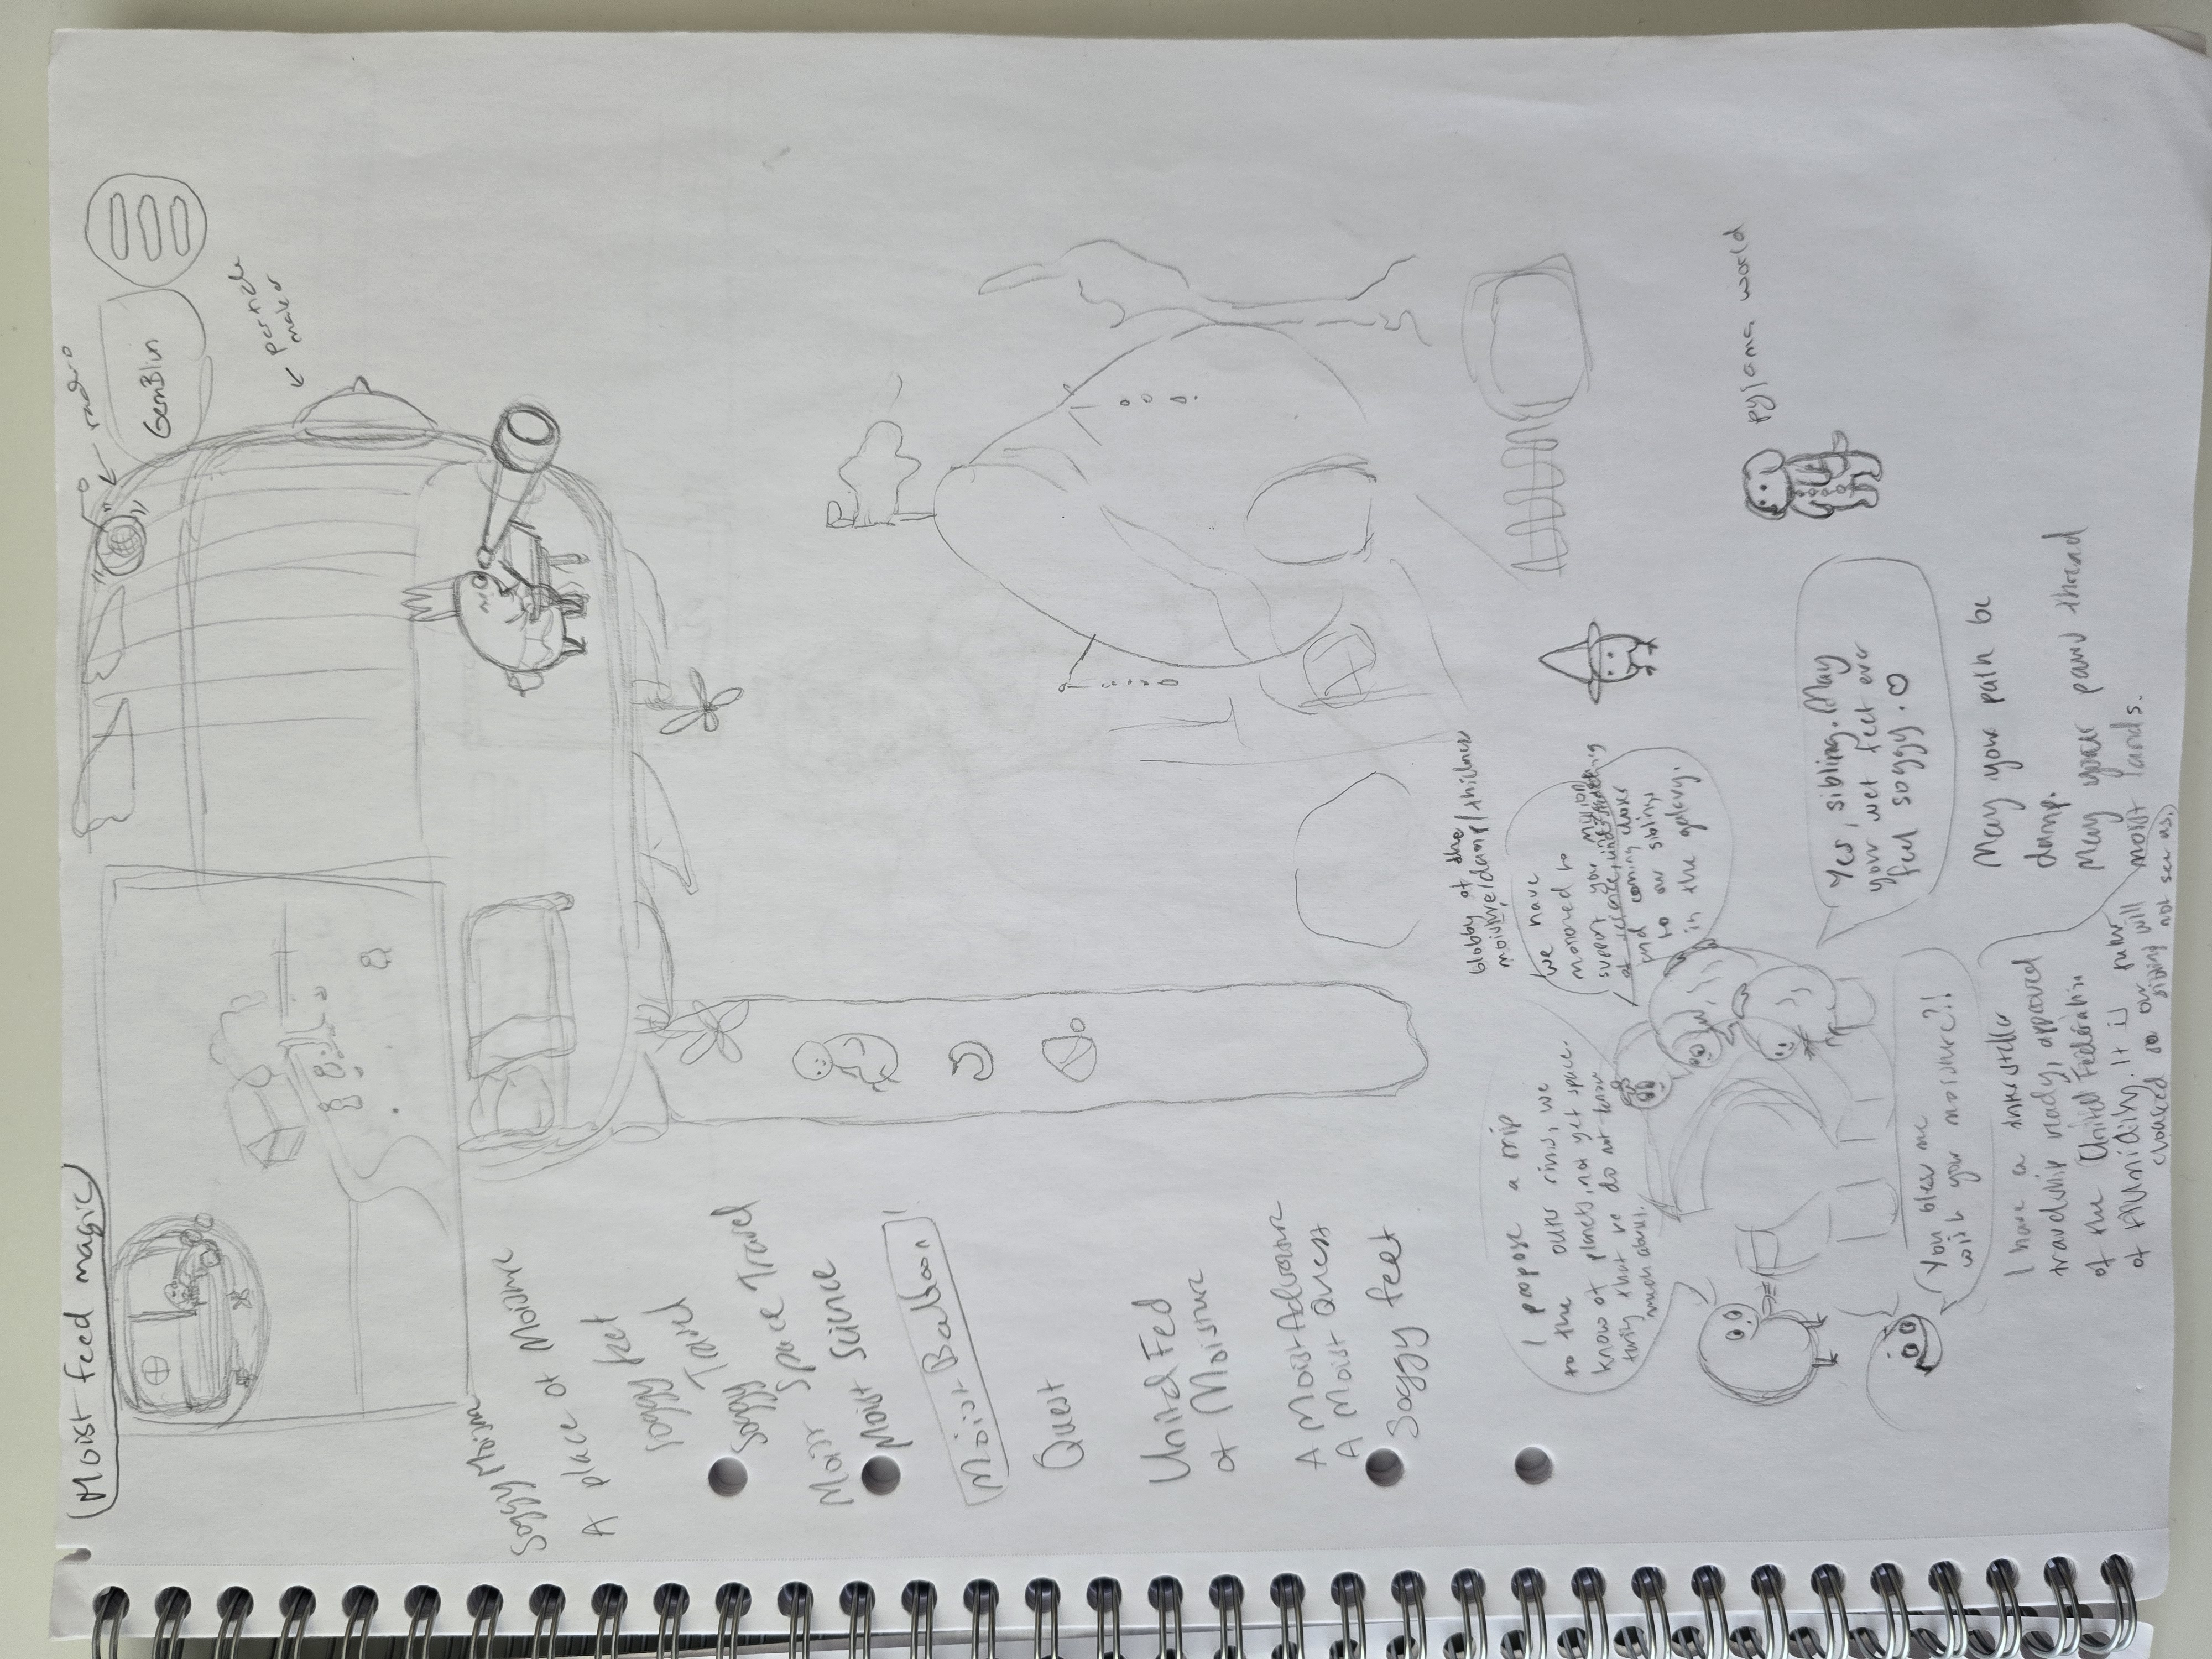 Moist feed magic
radio
GemBlim
particle
maker
Soggy Moisture
A place of Moisture
Soggy feet
Soggy Travel
Moist Space Travel
Moist Science
Moist Balloon!
Quest
United Fed
of Moisture
A Moist Adventure
A Moist Quest
Soggy feet
blobby of the
moisture/damp/thickness
I propose a trip
to the outer rims, we
know of planets, not yet space.
that we do not know
much about.
We have
motioned to
support your mission
of science, understanding
and coming closer
to our siblings
in the galaxy.
pyjama world
Yes, sibling. May
your wet feet ever
feel soggy. ♡
You bless me
with your moisture?!
I have a interstellar
travelship ready, approved
of the United Federation
of Humidity. It is
cloaked so our sibling will
not see us.
May your path be
damp.
May your paws thread
moist lands.